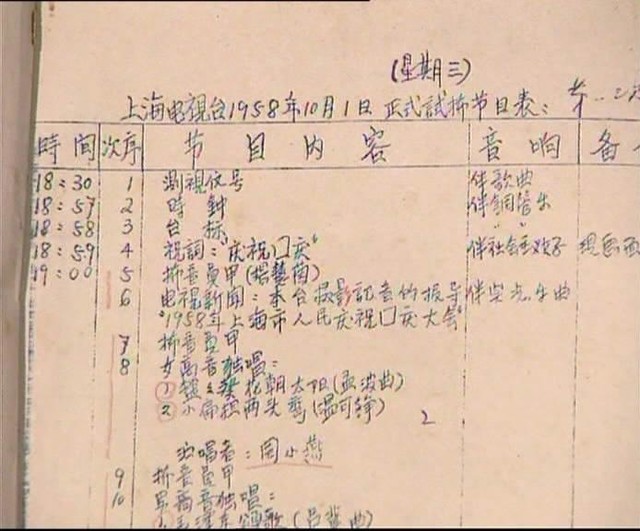 (星期三)
上海电視台1958年10月1日 正式試播节目表:
時间 次序 节目内容 音响 备
18:30 1 測視信号 伴歌曲
18:57 2 時鈡 伴銅管乐
18:58 3 台标 〃
18:59 4 祝詞:"庆祝囗庆" 伴社会主义好
19:00 5 播音員甲
6 电視新闻:本台摄影記者的报导
"1958年上海市人民庆祝囗庆大会"
7 播音員甲
8 女高音独唱:
① 花朝太阳(孟波曲)
② 小扁担两头弯
2
演唱者:周小燕
9 播音員甲
10 男高音独唱: